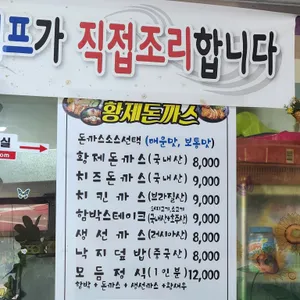 프가 직접조리합니다
황제돈까스
돈까스소스선택 (매운맛, 보통맛)
황제돈까스(국내산) 8,000
치즈돈까스(국내산) 9,000
치킨까스(브라질산) 9,000
함박스테이크 9,000
생선까스(러시아산) 8,000
낙지덮밥(중국산) 8,000
모듬정식(1인분) 12,000
함박 + 돈까스 + 생선까스 + 왕새우
실